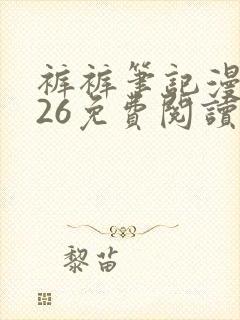 裤裤筆記漫
26免費閱讀
黎苗